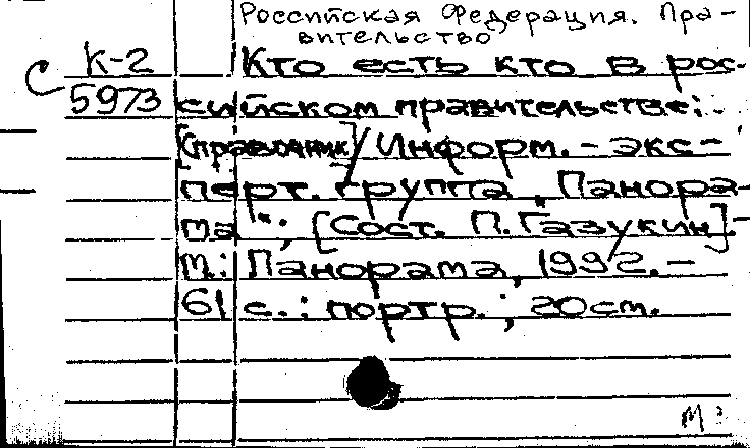 Российская Федерация. Пра-
вительство
С К-2 Кто есть кто в рос-
5973 сийском правительстве:
[Справочник] / Информ.-экс-
перт. группа „Панора-
ма“; [Сост. П. Газукин].-
М.: Панорама, 1992.-
61 с.: портр.; 20 см.